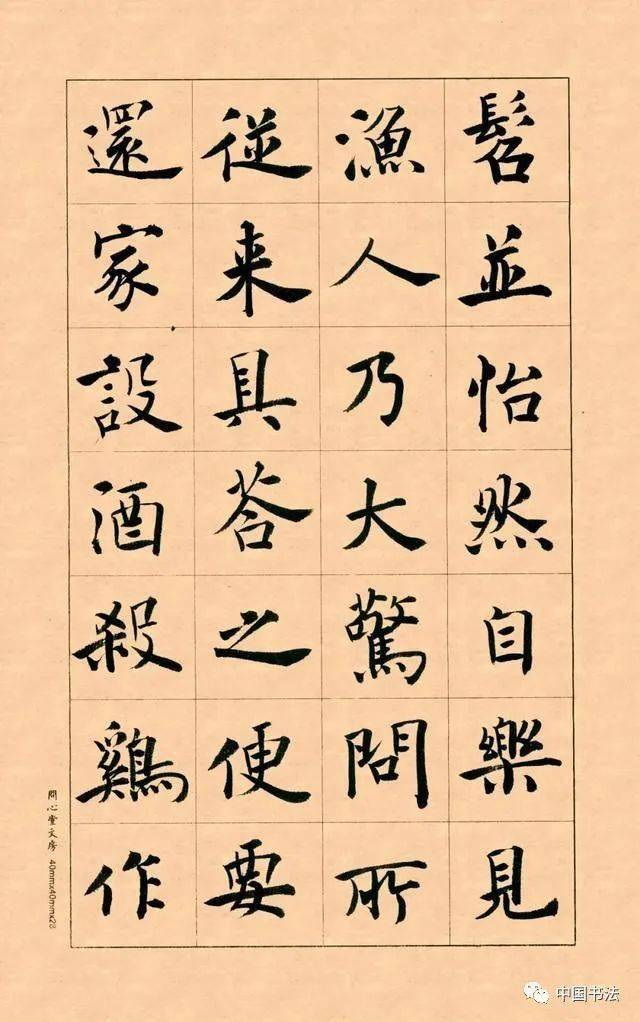 髫並怡然自樂見
漁人乃大驚問所
從来具荅之便要
還家設酒殺鷄作
問心堂文房 40mm×40mm×28
中国书法